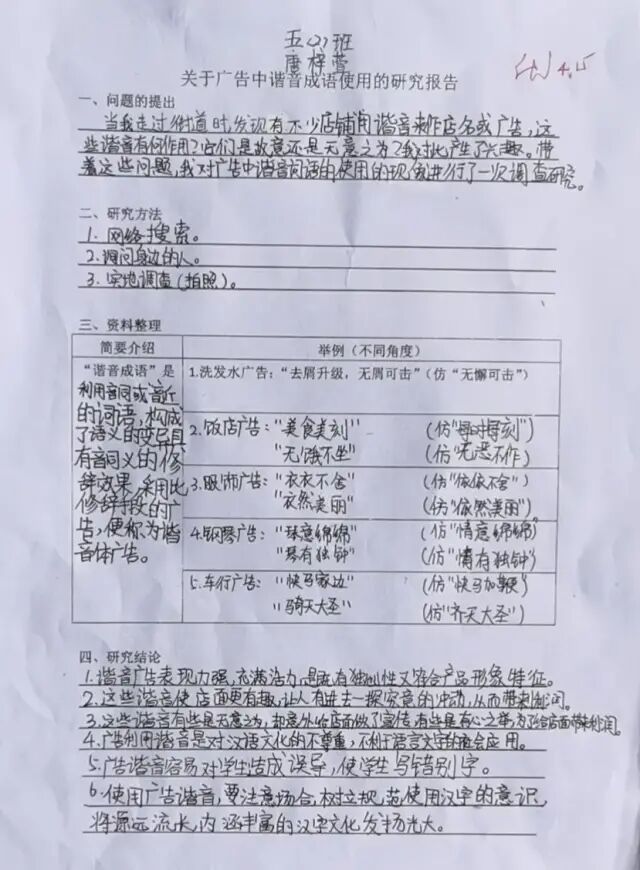 五(2)班
唐梓萱
4.15
关于广告中谐音成语使用的研究报告
一、问题的提出
当我走过街道时,发现有不少店铺用谐音来作店名或广告,这
些谐音有何作用?它们是故意还是无意之为?我对此产生了兴趣。带
着这些问题,我对广告中谐音词语的使用的现象进行了一次调查研究。
二、研究方法
1. 网络搜索。
2. 询问身边的人。
3. 实地调查(拍照)。
三、资料整理
简要介绍 举例(不同角度)
“谐音成语”是
利用音同或音近
的词语,构成
了语义的变异具
有音同义的修
辞效果,采用此
修辞手段的广
告,便称为谐
音体广告。
1.洗发水广告:“去屑升级,无屑可击”(仿“无懈可击”)
2.饭店广告:“美食美刻” (仿“每时每刻”)
“无饿不坐” (仿“无恶不作”)
3.服饰广告:“衣衣不舍” (仿“依依不舍”)
“衣然美丽” (仿“依然美丽”)
4.钢琴广告:“琴意绵绵” (仿“情意绵绵”)
“琴有独钟” (仿“情有独钟”)
5.车行广告:“快马家边” (仿“快马加鞭”)
“骑天大圣” (仿“齐天大圣”)
四、研究结论
1.谐音广告表现力强,充满活力,既有独创性又符合产品形象特征。
2.这些谐音使店面更有趣,让人有进去一探究竟的冲动,从而带来利润。
3.这些谐音有些是无意之为,却意外给店面做了宣传,有些是有心之举,为了给店面带来利润。
4.广告利用谐音是对汉语文化的不尊重,不利于语言文字的社会应用。
5.广告谐音容易对学生造成误导,使学生写错别字。
6.使用广告谐音,要注意场合,树立规范使用汉字的意识,
将源远流长,内涵丰富的汉字文化发扬光大。